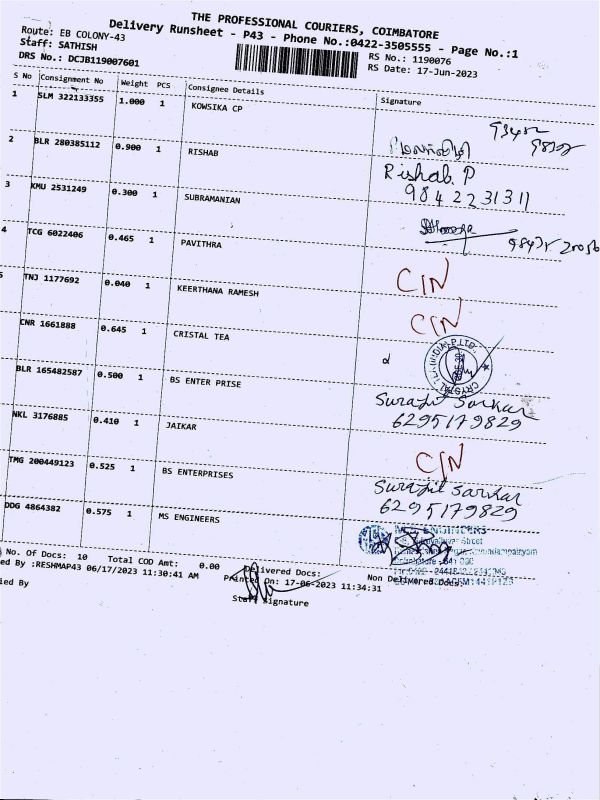 THE PROFESSIONAL COURIERS, COIMBATORE
Delivery Runsheet - P43 - Phone No.:0422-3505555 - Page No.:1
Route: EB COLONY-43
RS No.: 1190076
Staff: SATHISH
RS Date: 17-Jun-2023
DRS No.: DCJB119007601
S No Consignment No Weight PCS Consignee Details Signature
1 SLM 322133355 1.000 1 KOWSIKA CP
2 BLR 280385112 0.900 1 RISHAB Rishab. P
9842231311
3 KMU 2531249 0.300 1 SUBRAMANIAN
4 TCG 6022406 0.465 1 PAVITHRA C/N
TNJ 1177692 0.040 1 KEERTHANA RAMESH C/N
CNR 1661888 0.645 1 CRISTAL TEA
BLR 165482587 0.500 1 BS ENTER PRISE Surajit Sarkar
6295179829
NKL 3176885 0.410 1 JAIKAR C/N
TMG 200449123 0.525 1 BS ENTERPRISES Surajit Sarkar
6295179829
DDG 4864382 0.575 1 MS ENGINEERS
No. Of Docs: 10 Total COD Amt: 0.00 Delivered Docs: Non Delivered Docs:
ed By :RESHMAP43 06/17/2023 11:30:41 AM Printed On: 17-06-2023 11:34:31
ied By Staff Signature